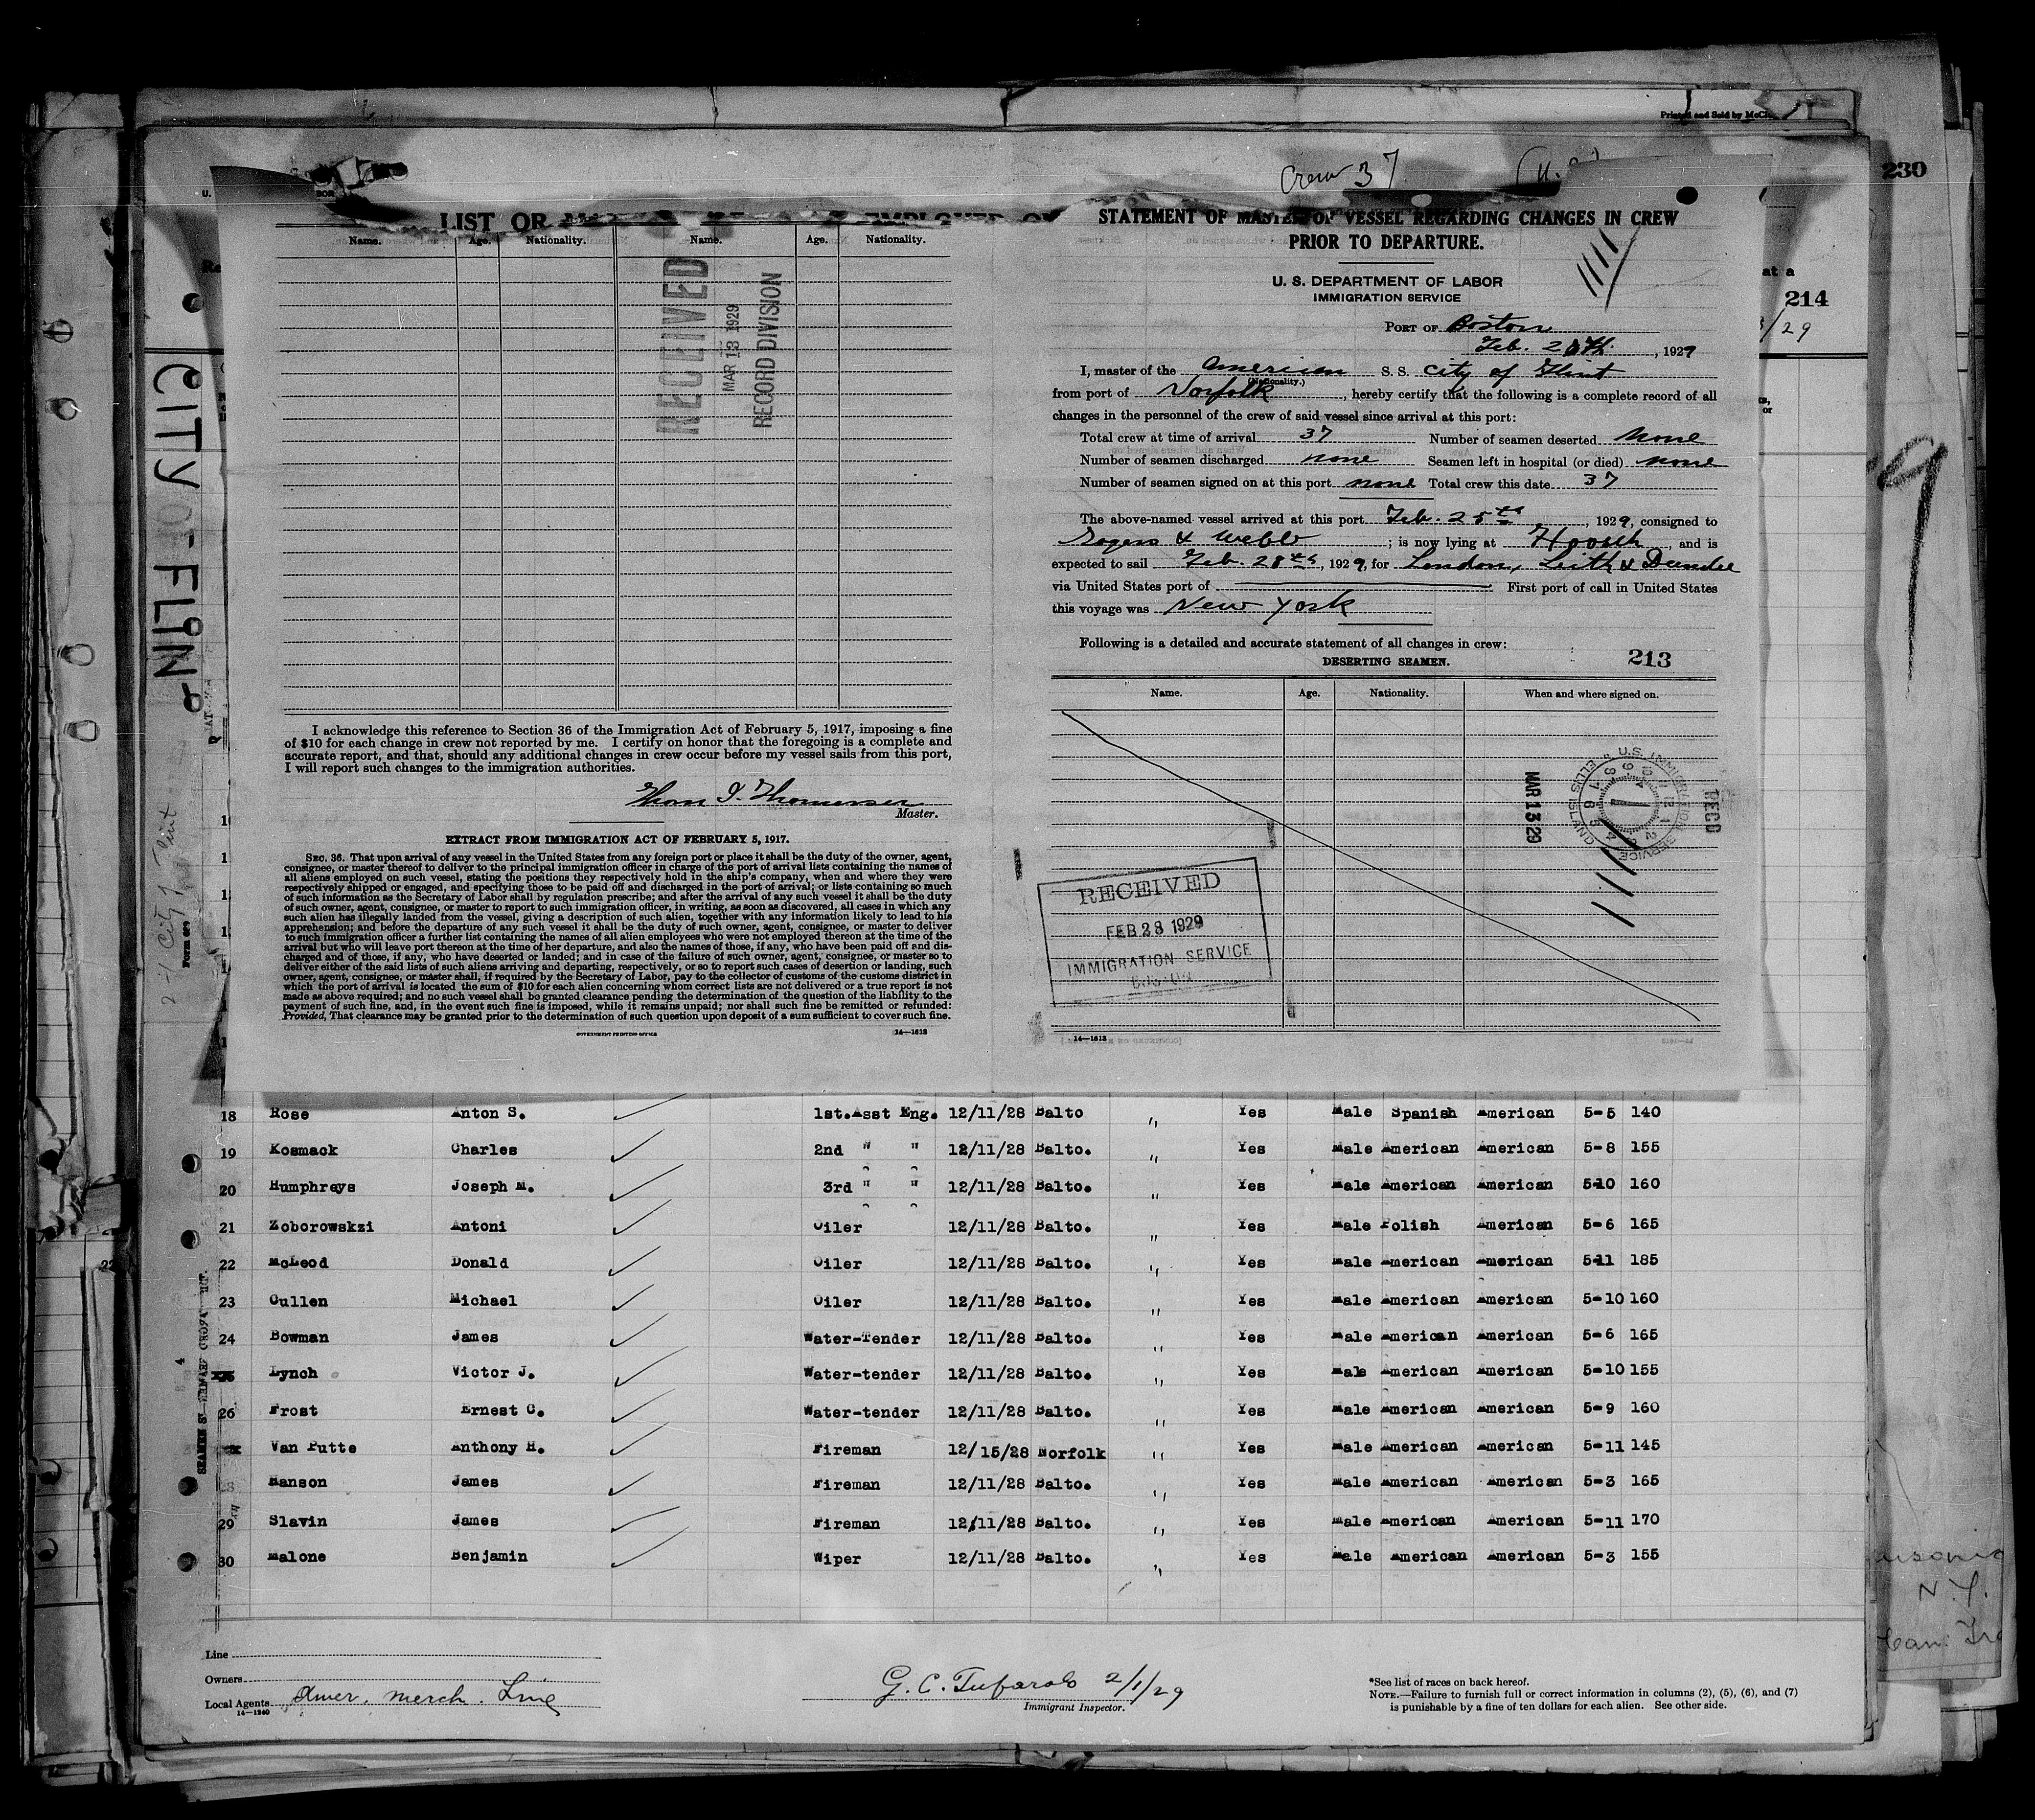 Printed and Sold by McC
Crew 37
230
LIST OR
Name. Age. Nationality. Name. Age. Nationality.
RECEIVED
MAR 13 1929
RECORD DIVISION
I acknowledge this reference to Section 36 of the Immigration Act of February 5, 1917, imposing a fine
of $10 for each change in crew not reported by me. I certify on honor that the foregoing is a complete and
accurate report, and that, should any additional changes in crew occur before my vessel sails from this port,
I will report such changes to the immigration authorities.
Master.
EXTRACT FROM IMMIGRATION ACT OF FEBRUARY 5, 1917.
SEC. 36. That upon arrival of any vessel in the United States from any foreign port or place it shall be the duty of the owner, agent,
consignee, or master thereof to deliver to the principal immigration officer in charge of the port of arrival lists containing the names of
all aliens employed on such vessel, stating the positions they respectively hold in the ship's company, when and where they were
respectively shipped or engaged, and specifying those to be paid off and discharged in the port of arrival; or lists containing so much
of such information as the Secretary of Labor shall by regulation prescribe; and after the arrival of any such vessel it shall be the duty
of such owner, agent, consignee, or master to report to such immigration officer, in writing, as soon as discovered, all cases in which any
such alien has illegally landed from the vessel, giving a description of such alien, together with any information likely to lead to his
apprehension; and before the departure of any such vessel it shall be the duty of such owner, agent, consignee, or master to deliver
to such immigration officer a further list containing the names of all alien employees who were not employed thereon at the time of the
arrival but who will leave port thereon at the time of her departure, and also the names of those, if any, who have been paid off and dis-
charged and of those, if any, who have deserted or landed; and in case of the failure of such owner, agent, consignee, or master so to
deliver either of the said lists of such aliens arriving and departing, respectively, or so to report such cases of desertion or landing, such
owner, agent, consignee, or master shall, if required by the Secretary of Labor, pay to the collector of customs of the customs district in
which the port of arrival is located the sum of $10 for each alien concerning whom correct lists are not delivered or a true report is not
made as above required; and no such vessel shall be granted clearance pending the determination of the question of the liability to the
payment of such fine, and, in the event such fine is imposed, while it remains unpaid; nor shall such fine be remitted or refunded:
Provided, That clearance may be granted prior to the determination of such question upon deposit of a sum sufficient to cover such fine.
GOVERNMENT PRINTING OFFICE 14—1613
STATEMENT OF MASTER OF VESSEL REGARDING CHANGES IN CREW
PRIOR TO DEPARTURE.
U. S. DEPARTMENT OF LABOR
IMMIGRATION SERVICE
PORT OF Boston
Feb. 28th, 1929
I, master of the American S. S. City of Flint
(Nationality.)
from port of Norfolk, hereby certify that the following is a complete record of all
changes in the personnel of the crew of said vessel since arrival at this port:
Total crew at time of arrival 37 Number of seamen deserted None
Number of seamen discharged none Seamen left in hospital (or died) none
Number of seamen signed on at this port none Total crew this date 37
The above-named vessel arrived at this port Feb. 25th, 1929, consigned to
Rogers & Webb; is now lying at Hoosek, and is
expected to sail Feb. 28th, 1929, for London, Leith & Dundee
via United States port of First port of call in United States
this voyage was New York
Following is a detailed and accurate statement of all changes in crew:
DESERTING SEAMEN. 213
Name. Age. Nationality. When and where signed on.
RECD
U.S. IMMIGRATION SERVICE ELLIS ISLAND
MAR 13 29
RECEIVED
FEB 28 1929
IMMIGRATION SERVICE
14—1613
at a
214
/29
CITY OF FLINT
2-1 City of Flint
18 Rose Anton S. 1st.Asst Eng. 12/11/28 Balto " Yes Male Spanish American 5-5 140
19 Kosmack Charles 2nd " " 12/11/28 Balto. " Yes Male American American 5-8 155
20 Humphreys Joseph M. 3rd " " 12/11/28 Balto. " Yes Male American American 5-10 160
21 Zoborowskzi Antoni Oiler 12/11/28 Balto. " Yes Male Polish American 5-6 165
22 McLeod Donald Oiler 12/11/28 Balto. " Yes Male American American 5-11 185
23 Cullen Michael Oiler 12/11/28 Balto. " Yes Male American American 5-10 160
24 Bowman James Water-Tender 12/11/28 Balto. " Yes Male American American 5-6 165
Lynch Victor J. Water-tender 12/11/28 Balto. " Yes Male American American 5-10 155
26 Frost Ernest C. Water-tender 12/11/28 Balto. " Yes Male American American 5-9 160
Van Putte Anthony H. Fireman 12/15/28 Norfolk " Yes Male American American 5-11 145
Hanson James Fireman 12/11/28 Balto. " Yes Male American American 5-3 165
29 Slavin James Fireman 12/11/28 Balto. " Yes Male American American 5-11 170
30 Malone Benjamin Wiper 12/11/28 Balto. " Yes Male American American 5-3 155
Line
Owners
Local Agents Amer. Merch. Line
14—1240
G. C. Tufarolo 2/1/29
Immigrant Inspector.
*See list of races on back hereof.
NOTE.—Failure to furnish full or correct information in columns (2), (5), (6), and (7)
is punishable by a fine of ten dollars for each alien. See other side.
N.Y.